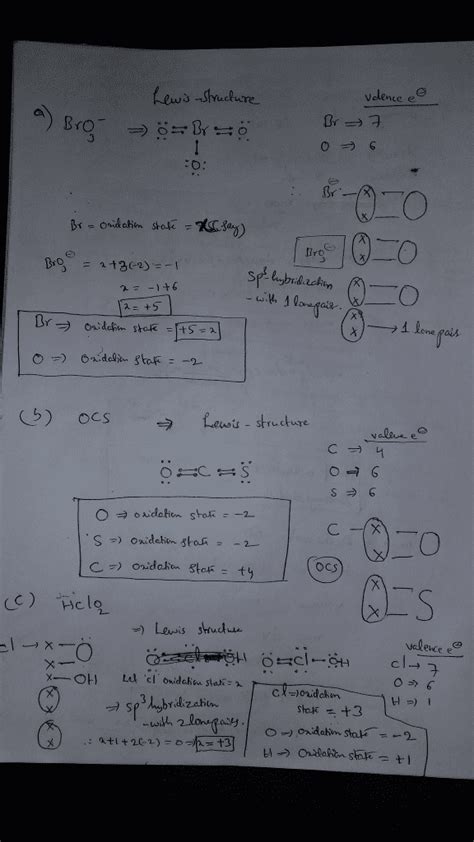 Lewis-structure
valence e⊖
a) BrO3^- ⇒ :Ö=Br=Ö:
:O:
Br ⇒ 7
O ⇒ 6
∴ Br⊖
x x = O
BrO3⊖
x x = O
sp3 hybridization
- with 1 lone pair.
x x = O
x x → 1 lone pair
Br = oxidation state = x (say)
BrO3⊖ = x+3(-2) = -1
x = -1+6
x = +5
Br ⇒ oxidation state = +5 = x
O ⇒ oxidation state = -2
(b) OCS ⇒ Lewis-structure
valence e⊖
C ⇒ 4
O ⇒ 6
S ⇒ 6
:O=C=S:
O ⇒ oxidation state = -2
S ⇒ oxidation state = -2
C ⇒ oxidation state = +4
C - x x = O
OCS
x x = S
(c) HClO2
⇒ Lewis structure
valence e⊖
Cl → 7
O ⇒ 6
H ⇒ 1
Cl → x x = O
x - OH
O=Cl-OH
Let 'Cl' oxidation state = x
⇒ sp3 hybridization
- with 2 lone pairs.
∴ x+1+2(-2) = 0 ⇒ x = +3
Cl ⇒ oxidation
state = +3
O ⇒ oxidation state = -2
H ⇒ oxidation state = +1